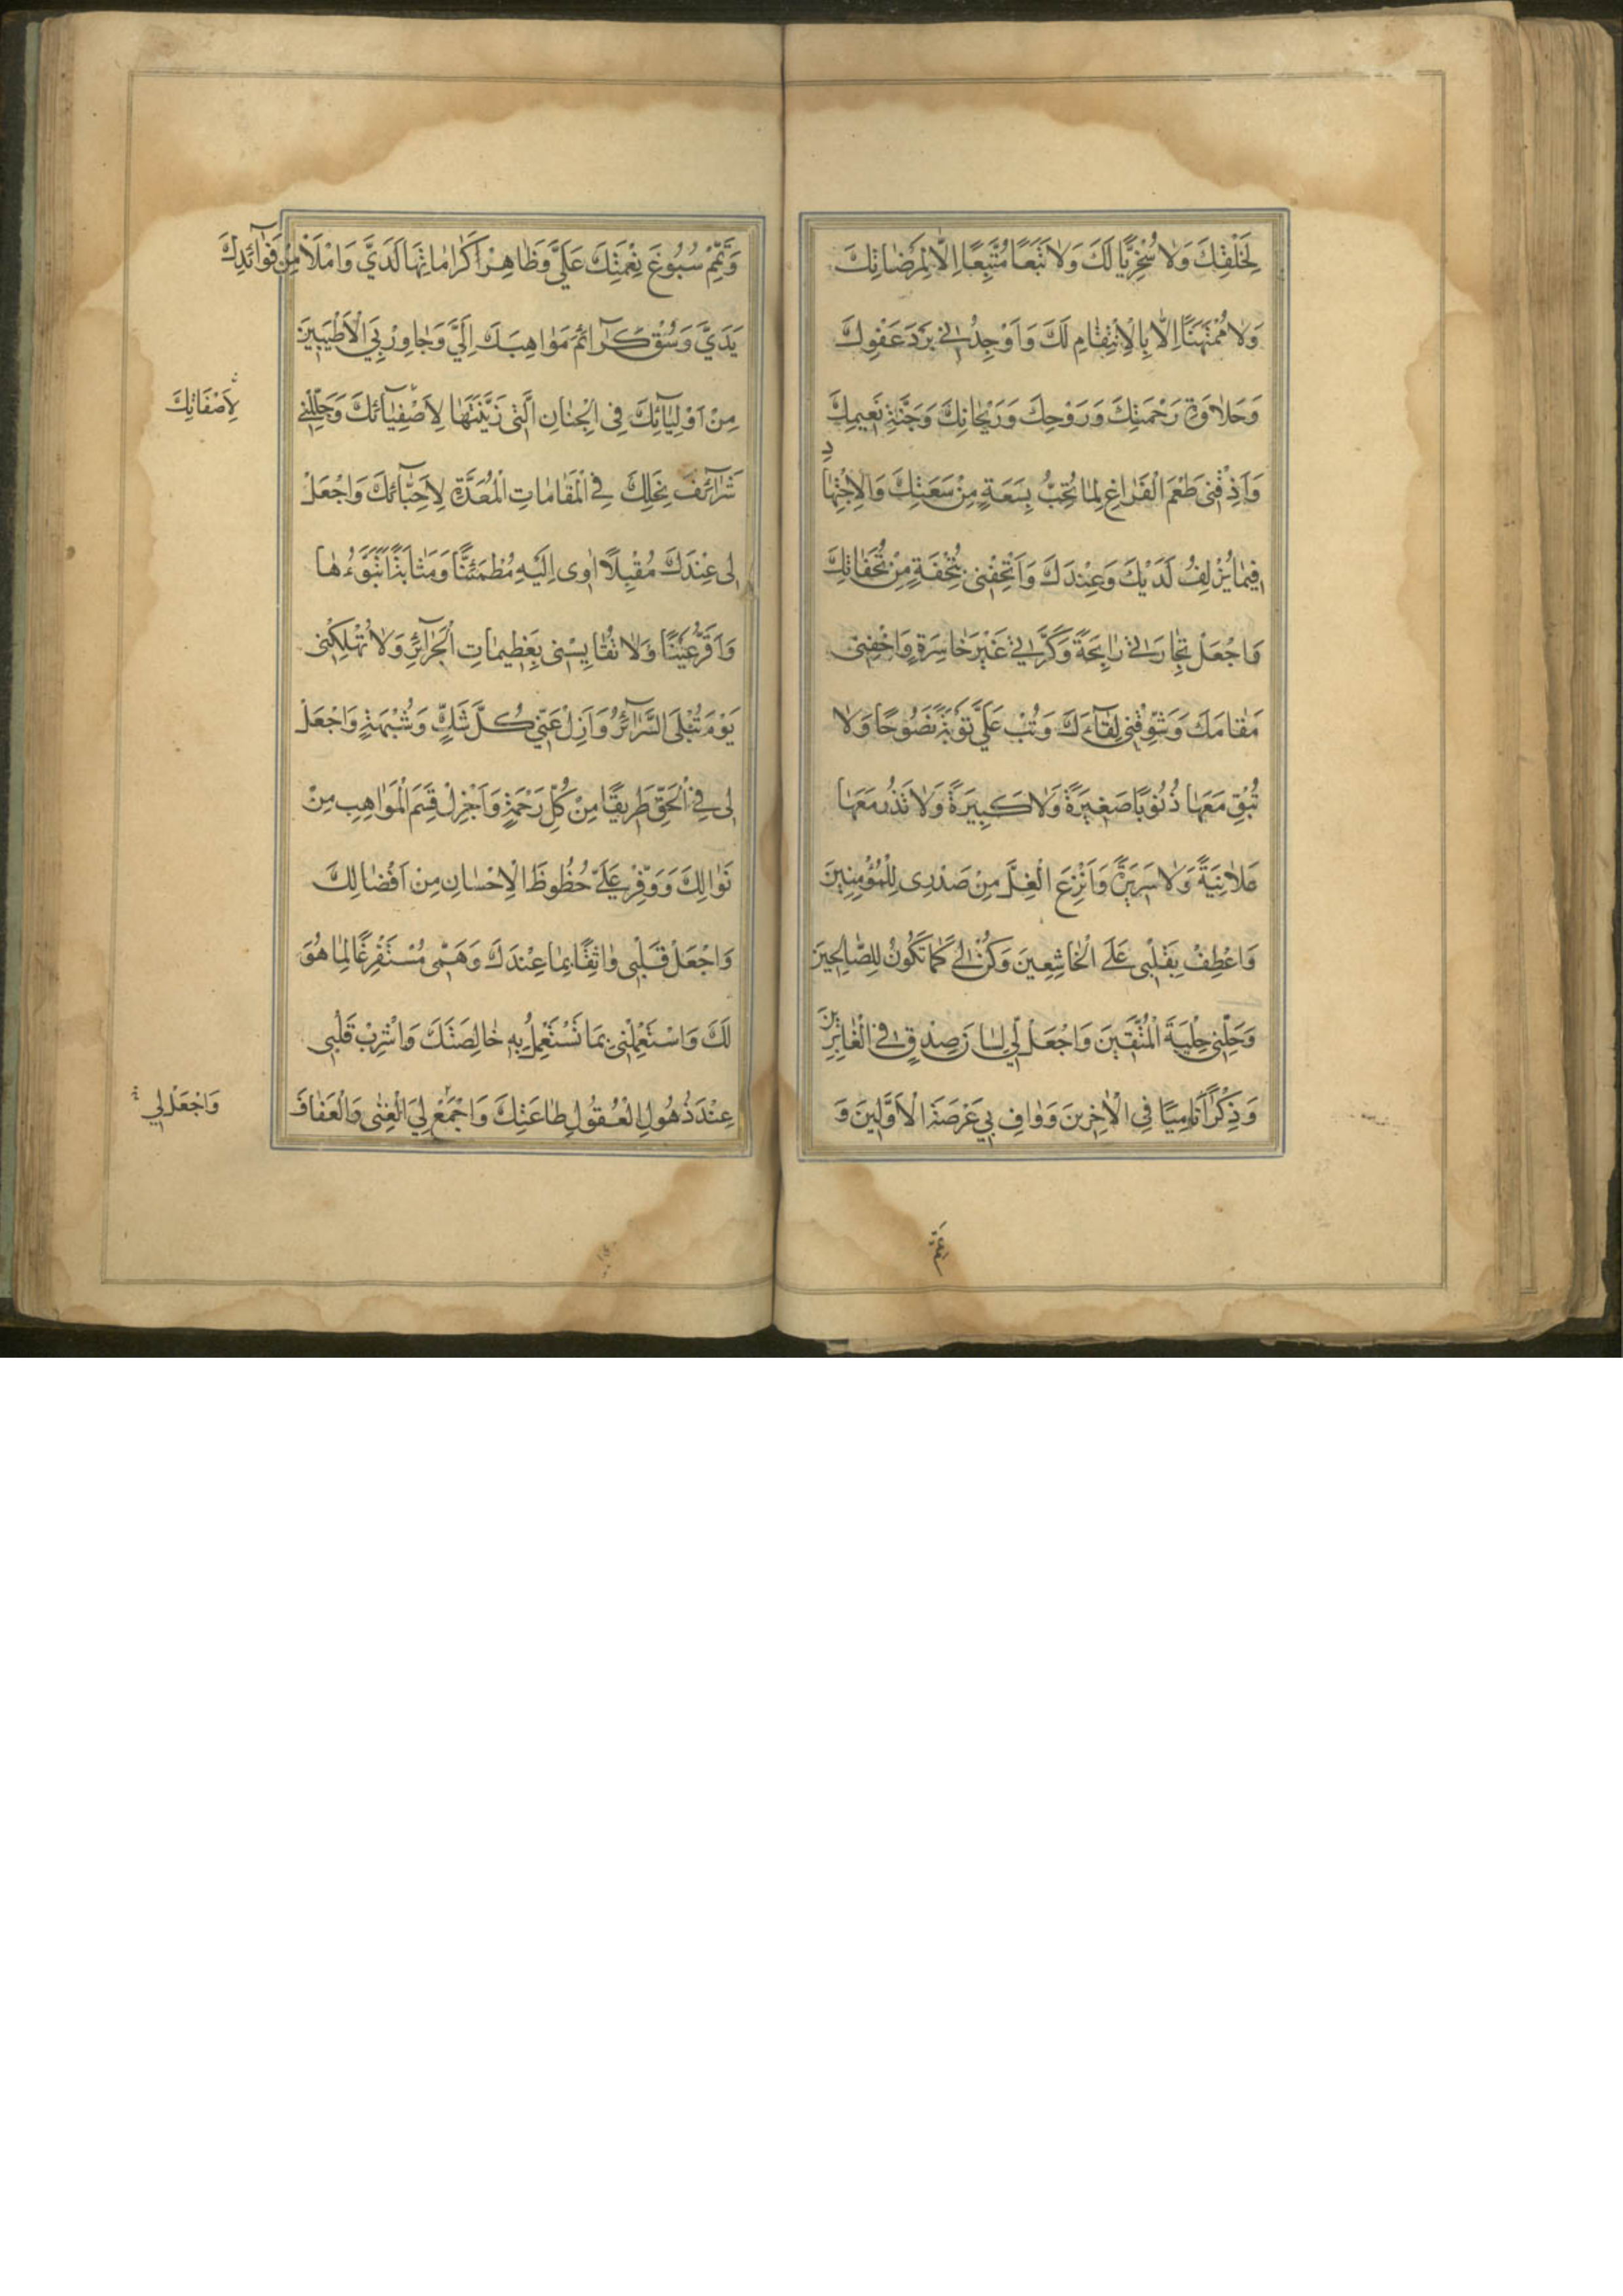 لِخَلْقِكَ وَلَا سُخْرِيًّا لَكَ وَلَا تَبَعًا مُتَّبِعًا اِلَّا لِمَرْضَاتِكَ
وَلَا مُمْتَهَنًا اِلَّا بِالْاِنْتِقَامِ لَكَ وَاَوْجِدْنِي بَرْدَ عَفْوِكَ
وَحَلَاوَةَ رَحْمَتِكَ وَرَوْحِكَ وَرَيْحَانِكَ وَجَنَّةِ نَعِيمِكَ
وَاَذِقْنِي طَعْمَ الْفَرَاغِ لِمَا تُحِبُّ بِسَعَةٍ مِنْ سَعَتِكَ وَالْاِجْتِهَادِ
فِيمَا يُزْلِفُ لَدَيْكَ وَعِنْدَكَ وَاَتْحِفْنِي بِتُحْفَةٍ مِنْ تُحَفَاتِكَ
وَاجْعَلْ تِجَارَتِي رَابِحَةً وَكَرَّتِي غَيْرَ خَاسِرَةٍ وَاَخِفْنِي
مَقَامَكَ وَشَوِّقْنِي لِقَاءَكَ وَتُبْ عَلَيَّ تَوْبَةً نَصُوحًا وَلَا
تُبْقِ مَعَهَا ذُنُوبًا صَغِيرَةً وَلَا كَبِيرَةً وَلَا تَذَرْ مَعَهَا
عَلَانِيَةً وَلَا سَرِيرَةً وَانْزِعِ الْغِلَّ مِنْ صَدْرِي لِلْمُؤْمِنِينَ
وَاعْطِفْ بِقَلْبِي عَلَى الْخَاشِعِينَ وَكُنْ لِي كَمَا تَكُونُ لِلصَّالِحِينَ
وَحَلِّنِي حِلْيَةَ الْمُتَّقِينَ وَاجْعَلْ لِي لِسَانَ صِدْقٍ فِي الْغَابِرِينَ
وَذِكْرًا نَامِيًا فِي الْاٰخِرِينَ وَوَافِ بِي عَرْصَةَ الْاَوَّلِينَ وَ
وَتَمِّمْ سُبُوغَ نِعْمَتِكَ عَلَيَّ وَظَاهِرْ كَرَامَاتِهَا لَدَيَّ وَامْلَأْ مِنْ فَوَائِدِكَ
يَدَيَّ وَسُقْ كَرَائِمَ مَوَاهِبِكَ اِلَيَّ وَجَاوِرْ بِيَ الْاَطْيَبِينَ
مِنْ اَوْلِيَائِكَ فِي الْجِنَانِ الَّتِي زَيَّنْتَهَا لِاَصْفِيَائِكَ وَجَلِّلْنِي
لِاَصْفَاتِكَ
شَرَائِفَ نِحَلِكَ فِي الْمَقَامَاتِ الْمُعَدَّةِ لِاَحِبَّائِكَ وَاجْعَلْ
لِي عِنْدَكَ مُقْبِلًا اٰوِي اِلَيْهِ مُطْمَئِنًّا وَمَثَابَةً اَتَبَوَّءُهَا
وَاَقَرُّ عَيْنًا وَلَا تُقَايِسْنِي بِعَظِيمَاتِ الْجَرَائِرِ وَلَا تُهْلِكْنِي
يَوْمَ تُبْلَى السَّرَائِرُ وَاَزِلْ عَنِّي كُلَّ شَكٍّ وَشُبْهَةٍ وَاجْعَلْ
لِي فِي الْحَقِّ طَرِيقًا مِنْ كُلِّ رَحْمَةٍ وَاَجْزِلْ قِسَمَ الْمَوَاهِبِ مِنْ
نَوَالِكَ وَوَفِّرْ عَلَيَّ حُظُوظَ الْاِحْسَانِ مِنْ اَفْضَالِكَ
وَاجْعَلْ قَلْبِي وَاثِقًا بِمَا عِنْدَكَ وَهَمِّي مُسْتَفْرِغًا لِمَا هُوَ
لَكَ وَاسْتَعْمِلْنِي بِمَا تَسْتَعْمِلُ بِهِ خَالِصَتَكَ وَاشْرِبْ قَلْبِي
عِنْدَ ذُهُولِ الْعُقُولِ طَاعَتَكَ وَاجْمَعْ لِيَ الْغِنٰى وَالْعَفَافَ
وَاجْعَلْ لِي